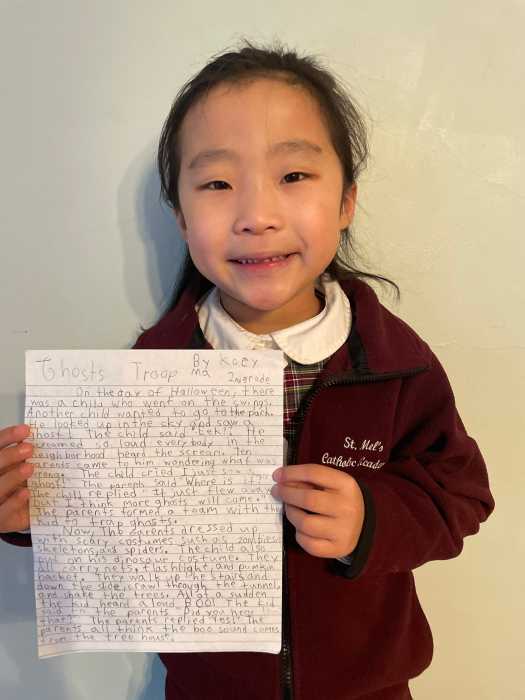 Ghosts Troop By Kacey Ma 2nd grade
On the day of Halloween, there
was a child who went on the swing.
Another child wanted to go to the park.
He looked up in the sky and saw a
ghost! The child said "Eek!" He
screamed so loud everybody in the
neighborhood heard the scream. Ten
parents came to him wondering what was
wrong. The child cried "I just saw a
ghost! The parents said where is it?"
The child replied "It just flew away
but I think more ghosts will come."
The parents formed a team with the
kid to trap ghosts.
Now, The parents dressed up
with scary costumes such as zombies,
skeletons, and spiders. The child also
put on his dinosaur costume. They
all carry nets, flashlight, and pumpkin
basket. They walk up the stairs and
down the slide, crawl through the tunnel,
and shake the trees. All of a sudden
the kid heard a loud, BOO! The kid
said to the parents "Did you hear
that?" The parents replied "Yes!" The
parents all think the boo sound comes
from the tree house.
St. Mel's
Catholic Academy